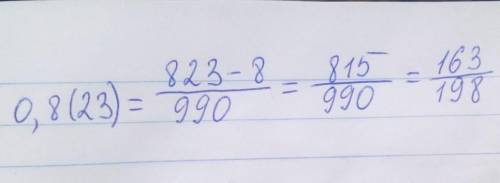 0,8(23) = \frac{823-8}{990} = \frac{815}{990} = \frac{163}{198}